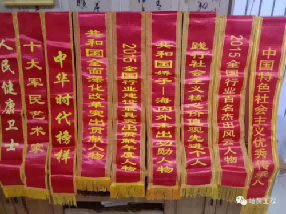 人民健康卫士
十大军民艺术家
中华时代榜样
共和国全面深化改革突出贡献人物
2015全国行业建设最具突出贡献年度人物
共和国骄子—海内外杰出功勋人物
践行社会主义核心价值观先进个人
2015全国行业百杰出风云人物
中国特色社会主义优秀人